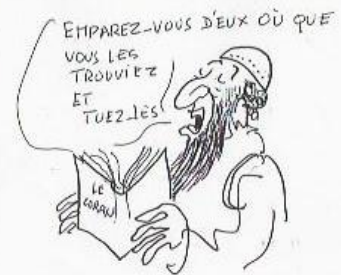 EMPAREZ-VOUS D'EUX OÙ QUE
VOUS LES
TROUVIEZ
ET
TUEZ-LES
LE
CORAN